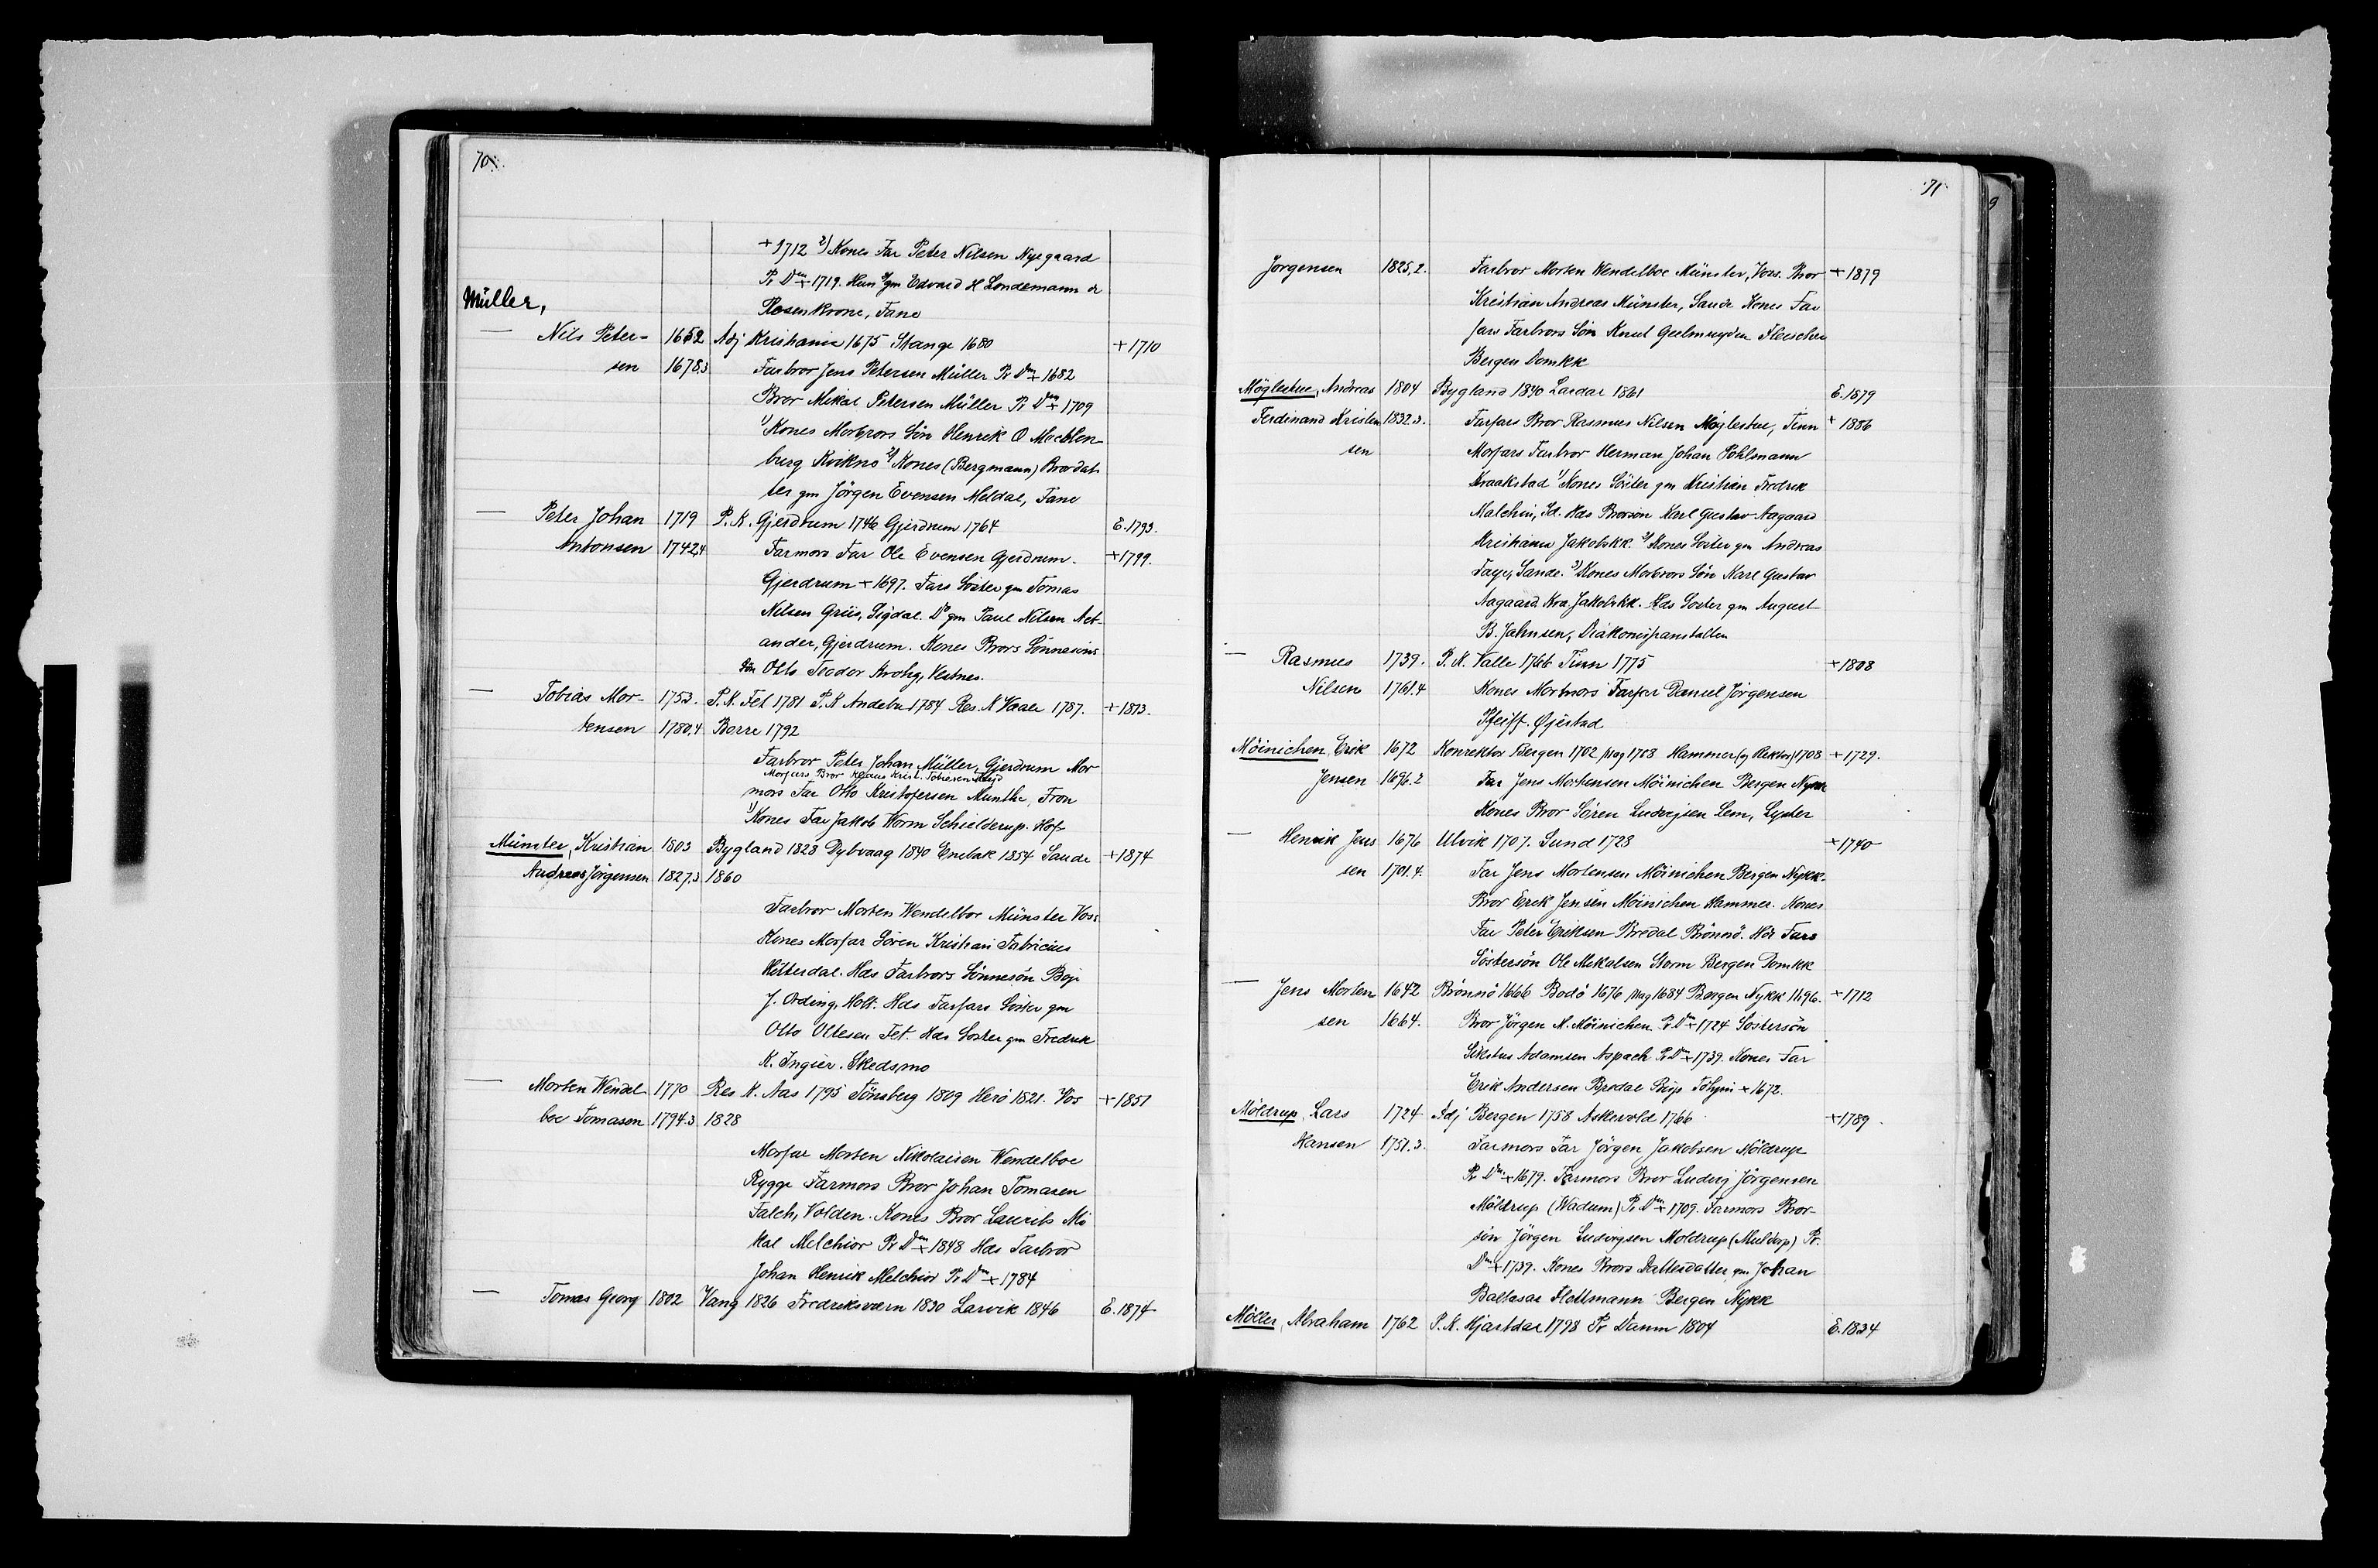 70.
+1712 2) Kones Far Peter Nilsen Nyegaard
Pr Dm + 1719. Hun gm Edvard H Londemann de
Müller, Rosenkrone, Fane
— Nils Peter- 1652 Adj Kristiania 1675 Stange 1680 +1710
sen 1678.3 Farbror Jens Petersen Müller Pr Dm + 1682
Bror Mikal Petersen Müller Pr Dm + 1709
1) Kones Morbrors Sön Henrik O Mechlen-
burg Kvikne 2) Kones (Bergmann) Brordat-
ter gm Jörgen Evensen Meldal, Fane
— Peter Johan 1719 P. K. Gjerdrum 1746 Gjerdrum 1764 E. 1793.
Antonsen 1742.4 Farmors Far Ole Evensen Gjerdrum. +1799.
Gjerdrum + 1697. Fars Söster gm Tomas
Nilsen Griis, Sigdal. Do gm Paul Nilsen Net-
ander, Gjerdrum. Kones Brors Sönnesöns
Sön Otto Teodor Krohg, Vestnes.
— Tobias Mor- 1753. P. K. Fet 1781 P. K Andebu 1784 Res. K Vaale 1787. +1813.
tensen 1780.4 Borre 1792
Farbror Peter Johan Müller, Gjerdrum Mor
Morfars Bror Klaus Krist. Tobiesen
mors Far Otto Kristofersen Munthe, Fron
1) Kones Far Jakob Worm Schielderup. Hof
Münster, Kristian 1803 Bygland 1828 Dybvaag 1840 Enebak 1854 Sande +1874
Andreas Jörgensen 1827.3 1860
Farbror Morten Wendelboe Münster Voss
Kones Morfar Sören Kristian Fabricius
Hitterdal. Hds Farbrors Sönnesön Boje
J. Ording, Holt. Hds Farfars Söster gm
Otto Ottesen Fet. Hds Söster gm Fredrik
K. Ingier. Skedsmo
— Morten Wendel- 1770 Res K. Aas 1795 Tönsberg 1809 Herö 1821. Vos +1851
boe Tomasen 1794.3 1828
Morfar Morten Nikolaisen Wendelboe
Rygge Farmors Bror Johan Tomasen
Falch, Volden. Kones Bror Laurits Mi
kal Melchior Pr Dm + 1848 Hds Farbror
Johan Henrik Melchior Pr Dm + 1784
— Tomas Georg 1802 Vang 1826 Fredriksværn 1830 Larvik 1846 E. 1874
71
Jörgensen 1825.2. Farbror Morten Wendelboe Münster, Voss. Bror +1879
Kristian Andreas Münster, Sande Kones Far
fars Farbrors Sön Knud Geelmuyden Fleischer
Bergen Domkk
Möglestue, Andreas 1804 Bygland 1840 Laardal 1861 E. 1879
Ferdinand Kristen 1832.3. Farfars Bror Rasmus Nilsen Möglestue, Tinn + 1886
sen Morfars Farbror Herman Johan Pohlmann
Kraakstad 1) Kones Söster gm Kristian Fredrik
Malchin, Id. Hds Brorsön Karl Gustav Aagaard
Kristiania Jakobskk. 2) Kones Söster gm Andreas
Faye, Sande. 3) Kones Morbrors Sön Karl Gustav
Aagaard Kra Jakobskk. Hds Söster gm August
B. Jahnsen, Diakonisseanstalten
— Rasmus 1739. P. K. Valle 1766 Tinn 1775 +1808
Nilsen 1761.4 Kones Mormors Farfar Daniel Jörgensen
Pfeiff. Øjestad
Möinichen, Erik 1672 Konrektor Bergen 1702 Mag 1708 Hammer (og Rektor) 1708 +1729.
Jensen 1696.2 Far Jens Mortensen Möinichen Bergen Nykk
Kones Bror Sören Ludvigsen Lem, Lyster
— Henrik Jens 1676 Ulvik 1707. Sund 1728 +1740
sen 1701.4. Far Jens Mortensen Möinichen Bergen Nykk.
Bror Erik Jensen Möinichen Hammer. Kones
Far Peter Eriksen Bredal Brönnö. Hds Fars
Söstersön Ole Mikalsen Storm Bergen Domkk
— Jens Morten 1642 Brönnö 1666 Bodö 1676 Mag 1684 Bergen Nykk 1696. +1712
sen 1664. Bror Jörgen M. Möinichen Pr Dm + 1724 Söstersön
Sikstus Adamsen Aspach Pr Dm + 1739. Kones Far
Erik Andersen Bredal Bisp Tdhjm + 1672.
Möldrup, Lars 1724 Adj Bergen 1758 Askevold 1766 +1789.
Hansen 1751.3. Farmors Far Jörgen Jakobsen Möldrup
Pr Dm + 1679. Farmors Bror Ludvig Jörgensen
Möldrup (Wadum) Pr Dm + 1709. Farmors Bror-
sön Jörgen Ludvigsen Moldrup (Muldorp) Pr.
Dm + 1739. Kones Brors Datterdatter gm Johan
Baltasar Flottmann Bergen Nykk
Möller, Abraham 1762 P. K. Hjartdal 1798 Pr Danm 1804 E. 1834